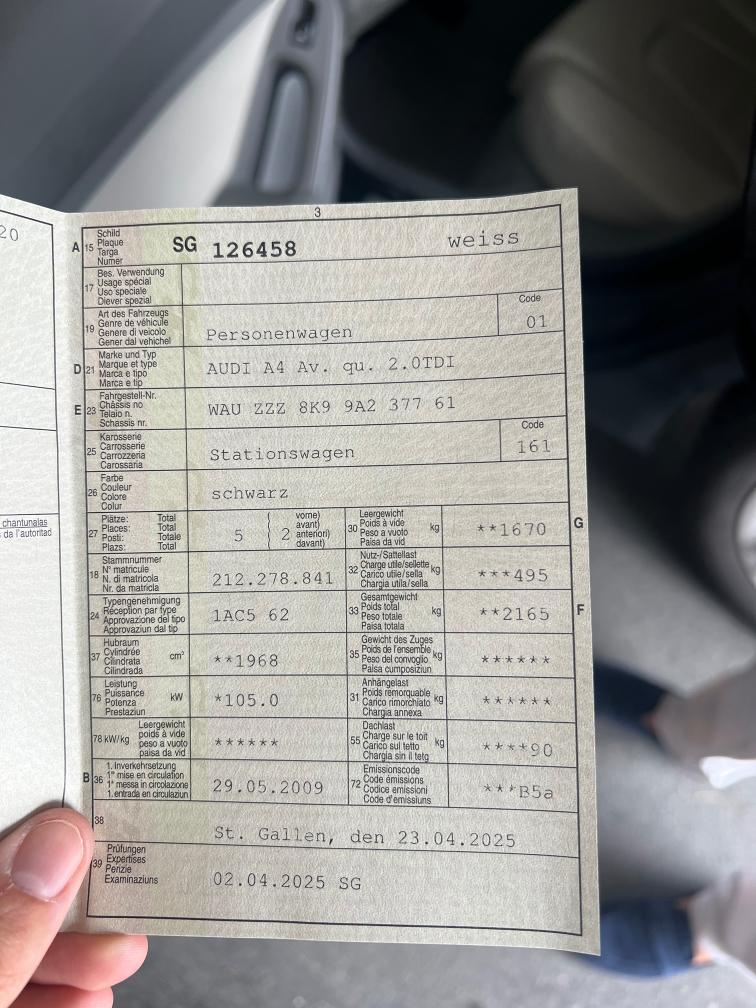 20
chantunalas
da l'autoritad
3
A 15 Schild
Plaque
Targa
Numer
SG 126458 weiss
17 Bes. Verwendung
Usage spécial
Uso speciale
Diever spezial
19 Art des Fahrzeugs
Genre de véhicule
Genere di veicolo
Gener dal vehichel
Personenwagen
Code
01
D 21 Marke und Typ
Marque et type
Marca e tipo
Marca e tip
AUDI A4 Av. qu. 2.0TDI
E 23 Fahrgestell-Nr.
Châssis no
Telaio n.
Schassis nr.
WAU ZZZ 8K9 9A2 377 61
25 Karosserie
Carrosserie
Carrozzeria
Carossaria
Stationswagen
Code
161
26 Farbe
Couleur
Colore
Colur
schwarz
27 Plätze: Total
Places: Total
Posti: Totale
Plazs: Total
5
2
vorne)
avant)
anteriori)
davant)
30 Leergewicht
Poids à vide
Peso a vuoto
Paisa da vid
kg
**1670
G
18 Stammnummer
N° matricule
N. di matricola
Nr. da matricla
212.278.841
32 Nutz-/Sattellast
Charge utile/sellette
Carico utile/sella
Chargia utila/sella
kg
***495
24 Typengenehmigung
Réception par type
Approvazione del tipo
Approvaziun dal tip
1AC5 62
33 Gesamtgewicht
Poids total
Peso totale
Paisa totala
kg
**2165
F
37 Hubraum
Cylindrée
Cilindrata
Cilindrada
cm³
**1968
35 Gewicht des Zuges
Poids de l'ensemble
Peso del convoglio
Paisa cumposiziun
kg
******
76 Leistung
Puissance
Potenza
Prestaziun
kW
*105.0
31 Anhängelast
Poids remorquable
Carico rimorchiato
Chargia annexa
kg
******
78 kW/kg
Leergewicht
poids à vide
peso a vuoto
paisa da vid
******
55 Dachlast
Charge sur le toit
Carico sul tetto
Chargia sin il tetg
kg
****90
B 36 1. Inverkehrsetzung
1re mise en circulation
1a messa in circolazione
1. entrada en circulaziun
29.05.2009
72 Emissionscode
Code émissions
Codice emissioni
Code d'emissiuns
***B5a
38
St. Gallen, den 23.04.2025
39 Prüfungen
Expertises
Perizie
Examinaziuns
02.04.2025 SG